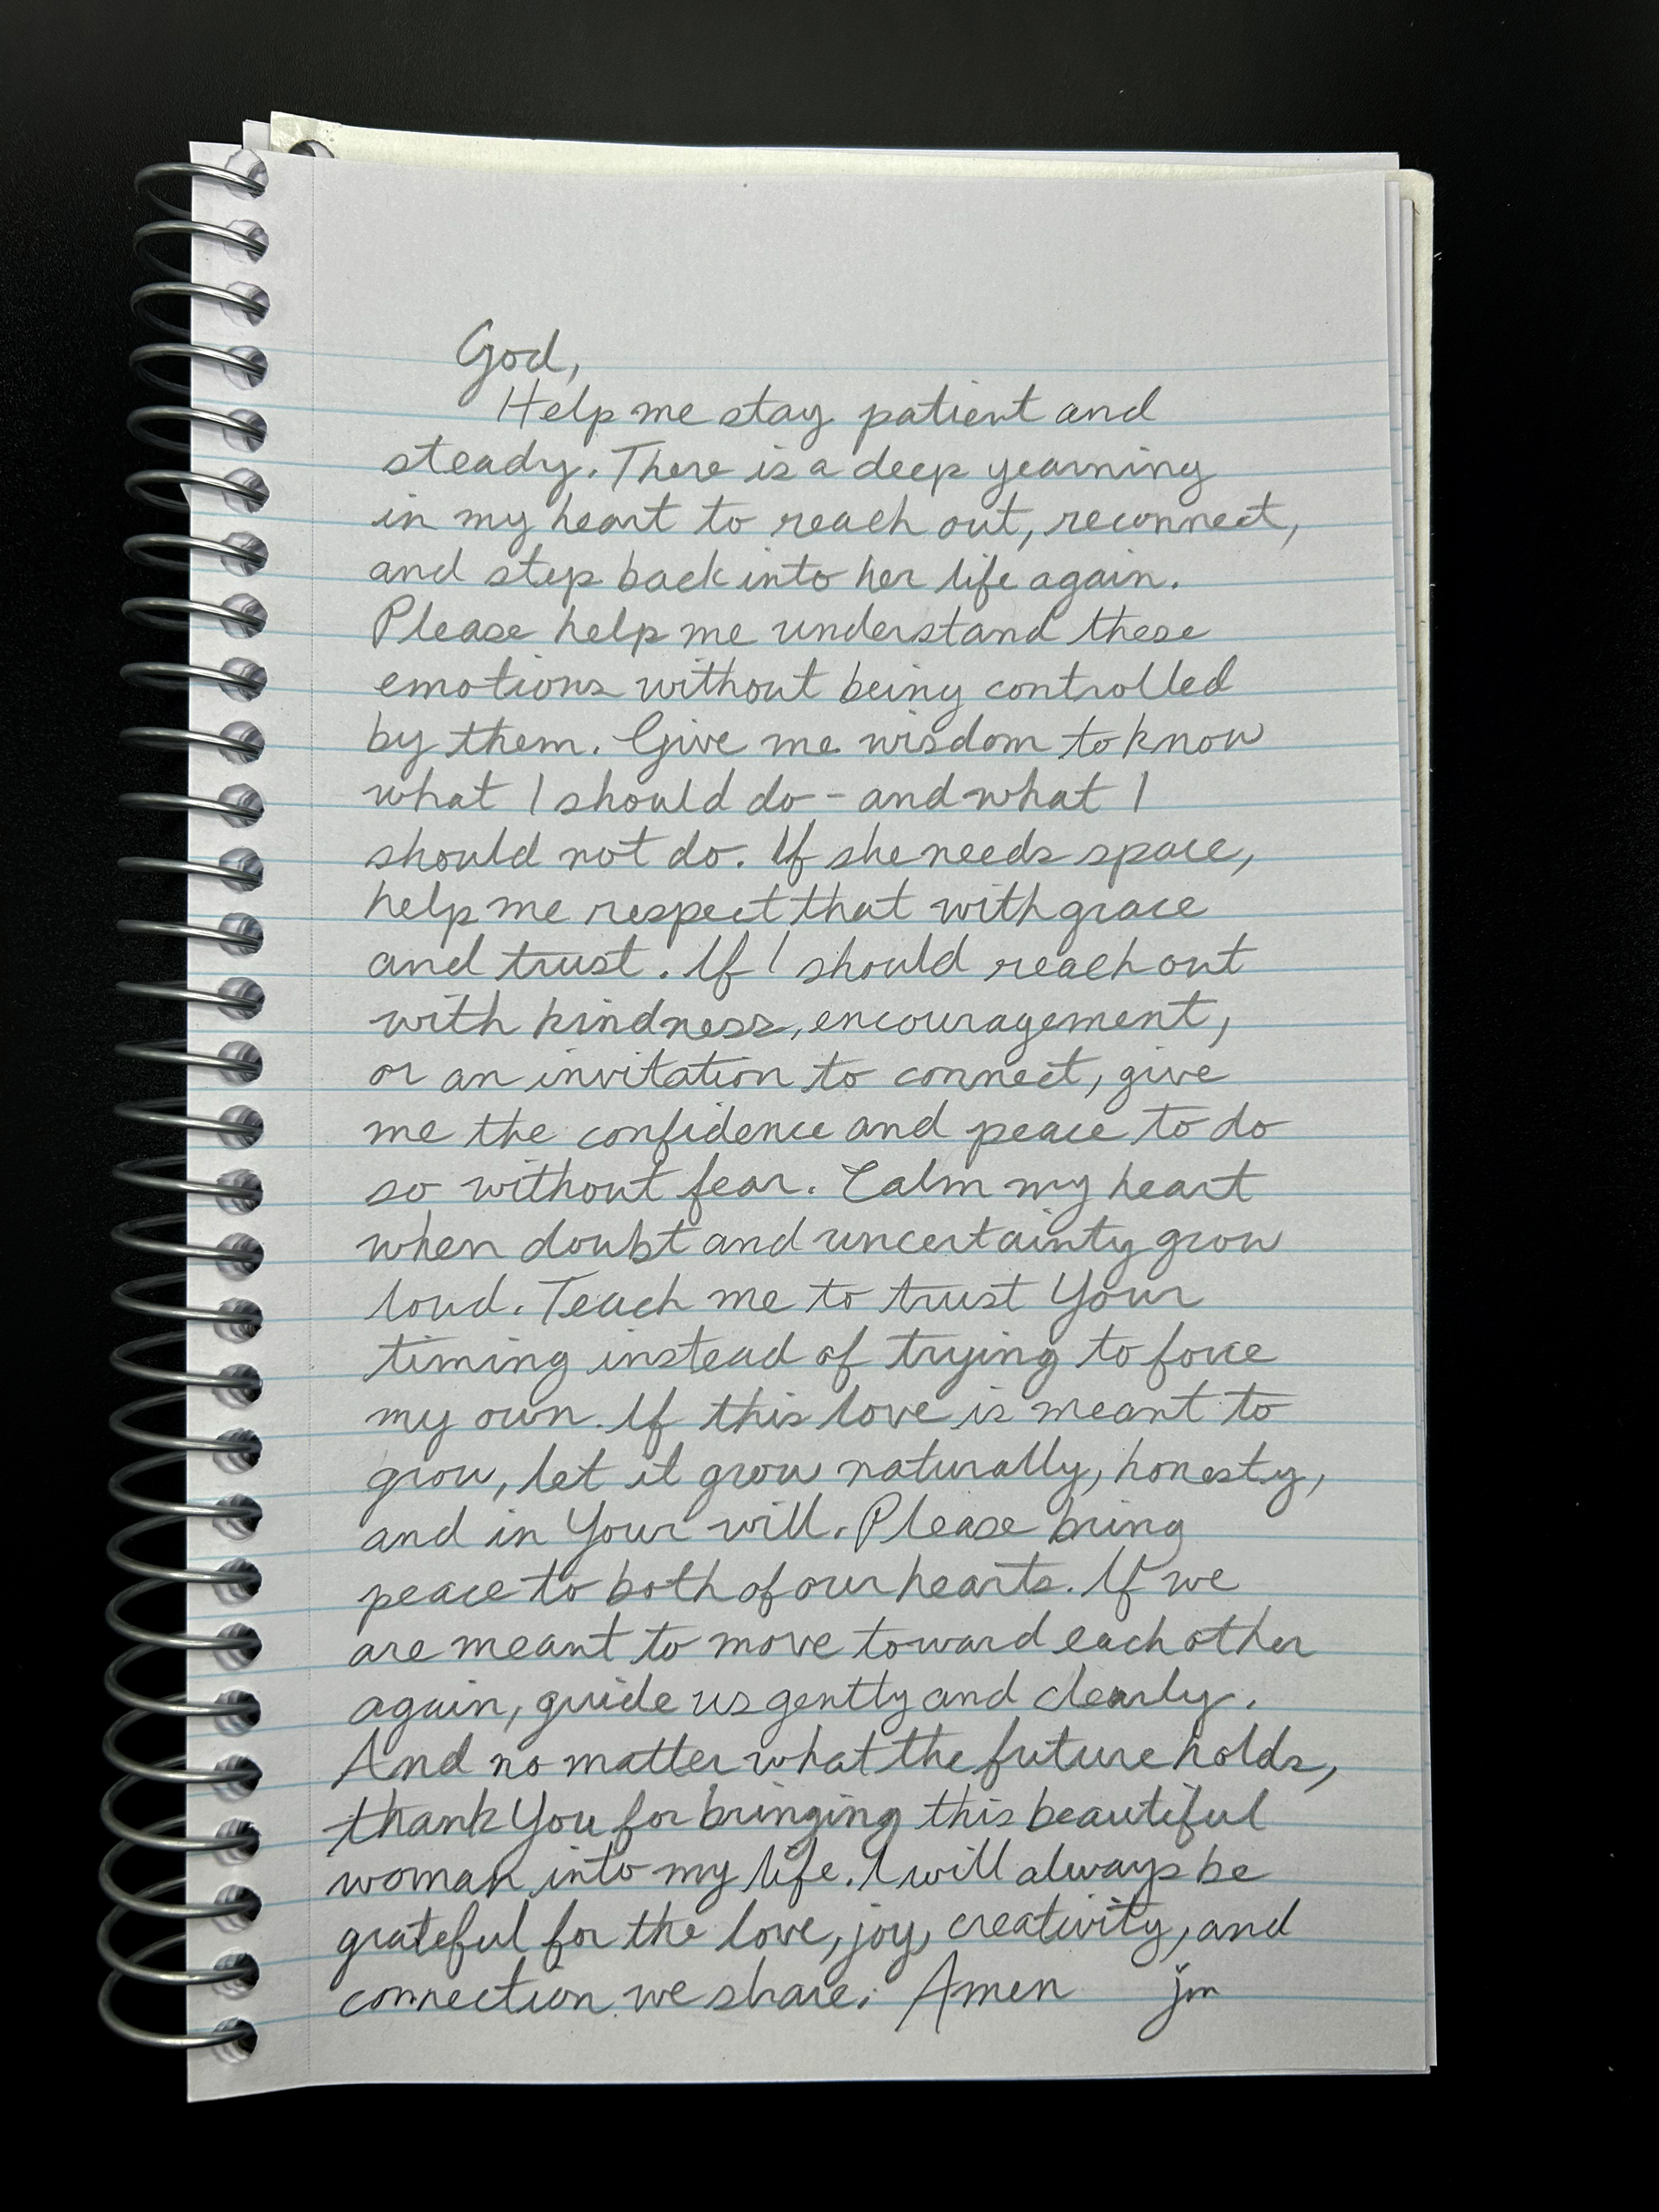 God,
Help me stay patient and
steady. There is a deep yearning
in my heart to reach out, reconnect,
and step back into her life again.
Please help me understand these
emotions without being controlled
by them. Give me wisdom to know
what I should do - and what I
should not do. If she needs space,
help me respect that with grace
and trust. If I should reach out
with kindness, encouragement,
or an invitation to connect, give
me the confidence and peace to do
so without fear. Calm my heart
when doubt and uncertainty grow
loud. Teach me to trust Your
timing instead of trying to force
my own. If this love is meant to
grow, let it grow naturally, honesty,
and in Your will. Please bring
peace to both of our hearts. If we
are meant to move toward each other
again, guide us gently and clearly.
And no matter what the future holds,
thank You for bringing this beautiful
woman into my life. I will always be
grateful for the love, joy, creativity, and
connection we share. Amen jm